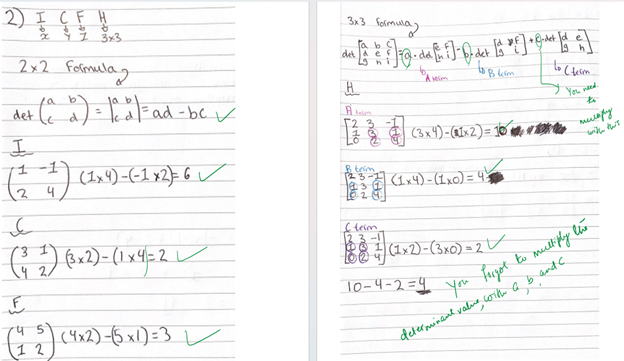 2) I C F H
X Y Z 3x3
2x2 Formula
det (a b c d) = |a b c d| = ad - bc ✓
I
(1 -1 2 4) (1x4)-(-1x2)=6 ✓
C
(3 1 4 2) (3x2)-(1x4)=2 ✓
F
(4 5 1 2) (4x2)-(5x1)=3 ✓
3x3 Formula
det [a b c d e f g h i] = a · det [e f h i] - b · det [d f g i] + c · det [d e g h]
A term B term C term
You need
to
multiply
with this
H
A term
[2 3 -1 1 3 1 0 2 4] (3x4)-(1x2)=10
B term
[2 3 -1 1 3 1 0 2 4] (1x4)-(1x0)=4 ✓
C term
[2 3 -1 1 3 1 0 2 4] (1x2)-(3x0)=2 ✓
10-4-2=4
You forgot to multiply the
determinant value, with a, b, and c